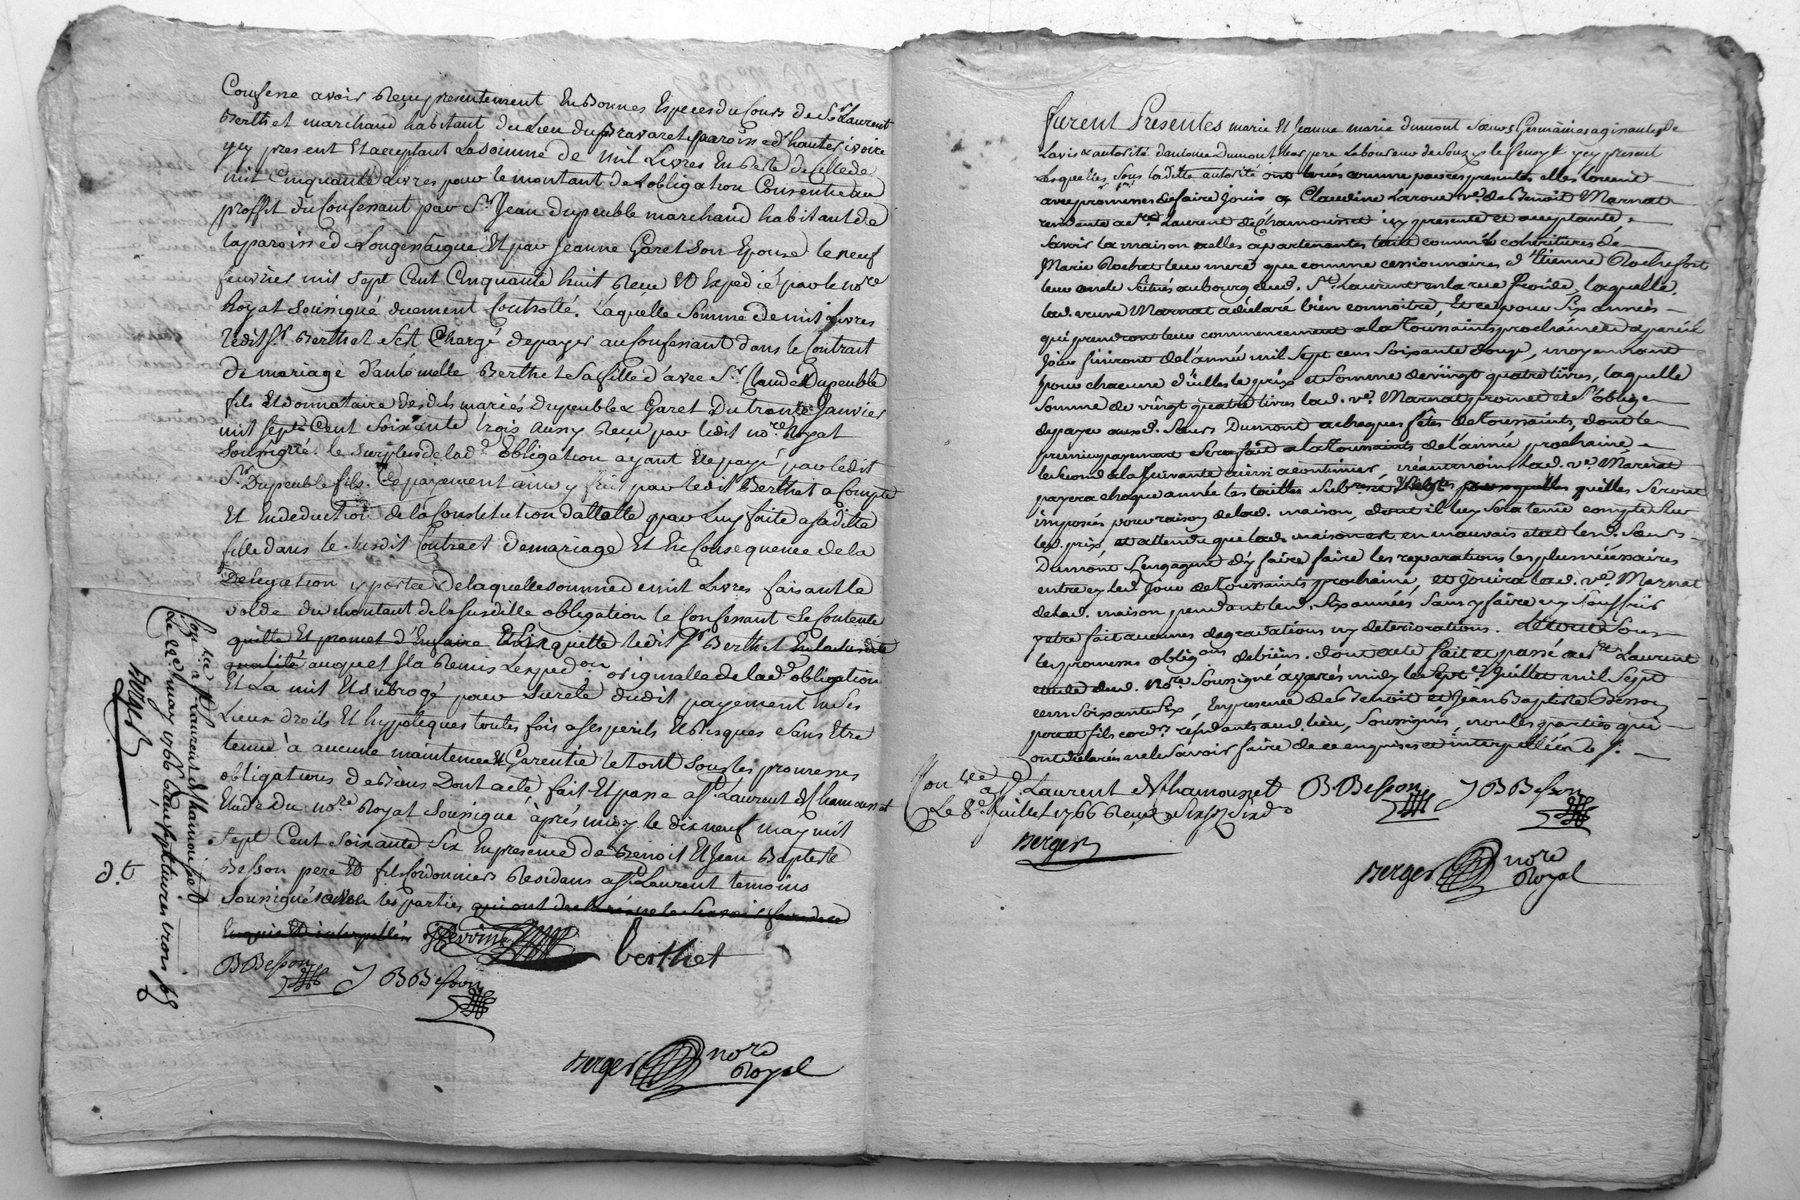 Confesse avoir Reçu presentement En Bonnes Especes du Cours de Sr Laurent
Berthet marchand habitant du Lieu du Bravaret paroisse d'hauterivoire
icy present Et acceptant La somme de mil Livres En Reste de Celle de
mil Cinquante Livres pour le montant de Lobligation Consentie au
proffit du Confessant par Sr Jean Dupeuble marchand habitant de
la paroisse de Longessaigne Et par Jeanne Garet son Epouse le neuf
feuvrier mil sept Cent Cinquante huit Reçue Et Expedié par le nore
Royal soussigné duement Controllé. Laquelle somme de mil Livres
ledit Sr Berthet s'est Chargé de payer au Confessant dans le Contrait
De mariage d'antoinette Berthet sa fille d'avec Sr Claude Dupeuble
fils Et donnataire desdits mariés Dupeuble & Garet Du trante Janvier
mil sept Cent soixante trois aussy Reçu par ledit nore Royal
soussigné. le surplus de lad. obligation ayant Eté payé par ledit
Sr Dupeuble fils. Ce payement ainsy fait par ledit Berthet a Compte
Et En deduction de la Constitution dallotte par Luy faite a sa ditte
fille dans le susdit Contract de mariage Et En Consequence de la
Delegation y portée de laquelle somme de mil Livres faisant le
solde du montant de la susditte obligation le Confessant se Contente
quitte Et promet d'En faire Etre quitte ledit Sr Berthet En la susdite
qualité auquel Il a Remis Lexpedon originalle de lad. obligation
Et La mit Et subrogé pour sureté dudit payement En ses
Lieux droits Et hypoteques toutes fois a ses perils Et Risques sans Etre
tenu à aucune maintenue & Garentie le tout sous les promesses
obligations de Biens Dont acte fait Et passé a St Laurent de Chamousset
Etude du nore Royal soussigné après midy le dix neuf may mil
sept Cent soixante six En presence de Benoit Et Jean Baptiste
Besson pere Et fils Cordonniers Residans a St Laurent temoins
soussignés avec les parties qui ont declaré ne le scavoir faire de ce
Enquis Et interpellés
Berthet
BBesson J BBesson
Berger nore
Royal
d. t.
Conlée a St Laurent de Chamousset
Le 22e may 1766
Berger
Furent Presentes marie Et Jeanne marie dumont sœurs Germaines agissantes de
Lavis & autorité d'antoine Dumont leur pere Laboureur de Souzy le icy present
Lesquelles sous laditte autorité
avec promesses de faire Jouir a Claudine Laroue ve de Benoit Marnat
residente a St Laurent de Chamousset icy presente et acceptante,
Savoir la maison a elles apartenantes tant comme coheritieres de
Marie Rochet leur mere que comme cessionnaires d'Etienne Rochefort
leur oncle scitués au bourg dud. St Laurent en la rue froide, laquelle
lad. veuve Marnat a déclaré bien connoitre, Et ce pour Six années
qui prendront leur commencement a la Toussaints prochaine & a pareil
Jour finiront de l'année mil Sept cens Soixante douze, moyennant
pour chacune d'icelles le prix et Somme de vingt quatre livres, laquelle
Somme de vingt quatre livres lad. ve Marnat promet et S'oblige
de payer auxd. Sœurs Dumont a chaques fêtes de Toussaints, dont le
premier payement Sera fait a la Toussaints de l'année prochaine
le Second a la Suivante ainsi a continuer, néanmoins lad. ve Marnat
payera chaque année les tailles quelles Seront
imposées pour raison de lad. maison, dont il luy Sera tenu compte Sur
led. prix, et attendu que lad. maison est en mauvais etat lesd. Sœurs
Dumont S'engagent d'y faire faire les reparations les plus nécessaires
entre cy led. Jour de Toussaints prochaine, et Jouira lad. ve Marnat
de lad. maison pendant lesd. Six années Sans y faire ny Souffrir
y etre fait aucunes degradations ny deteriorations. Le tout Sous
les promesses obligons de biens. dont acte fait et passé a St Laurent
etude dud. Nore Soussigné après midy le Sept Juillet mil Sept
cens Soixante Six, En presence de Benoit et Jean Baptiste Besson
pere et fils cordrs résidants aud. lieu, Soussignés, non les parties qui
ont déclarés ne le Savoir faire de ce enquises et interpellées
Conlée a St Laurent de Chamousset
Le 8e Juillet 1766 Reçu
Berger
BBesson J BBesson
Berger nore
Royal